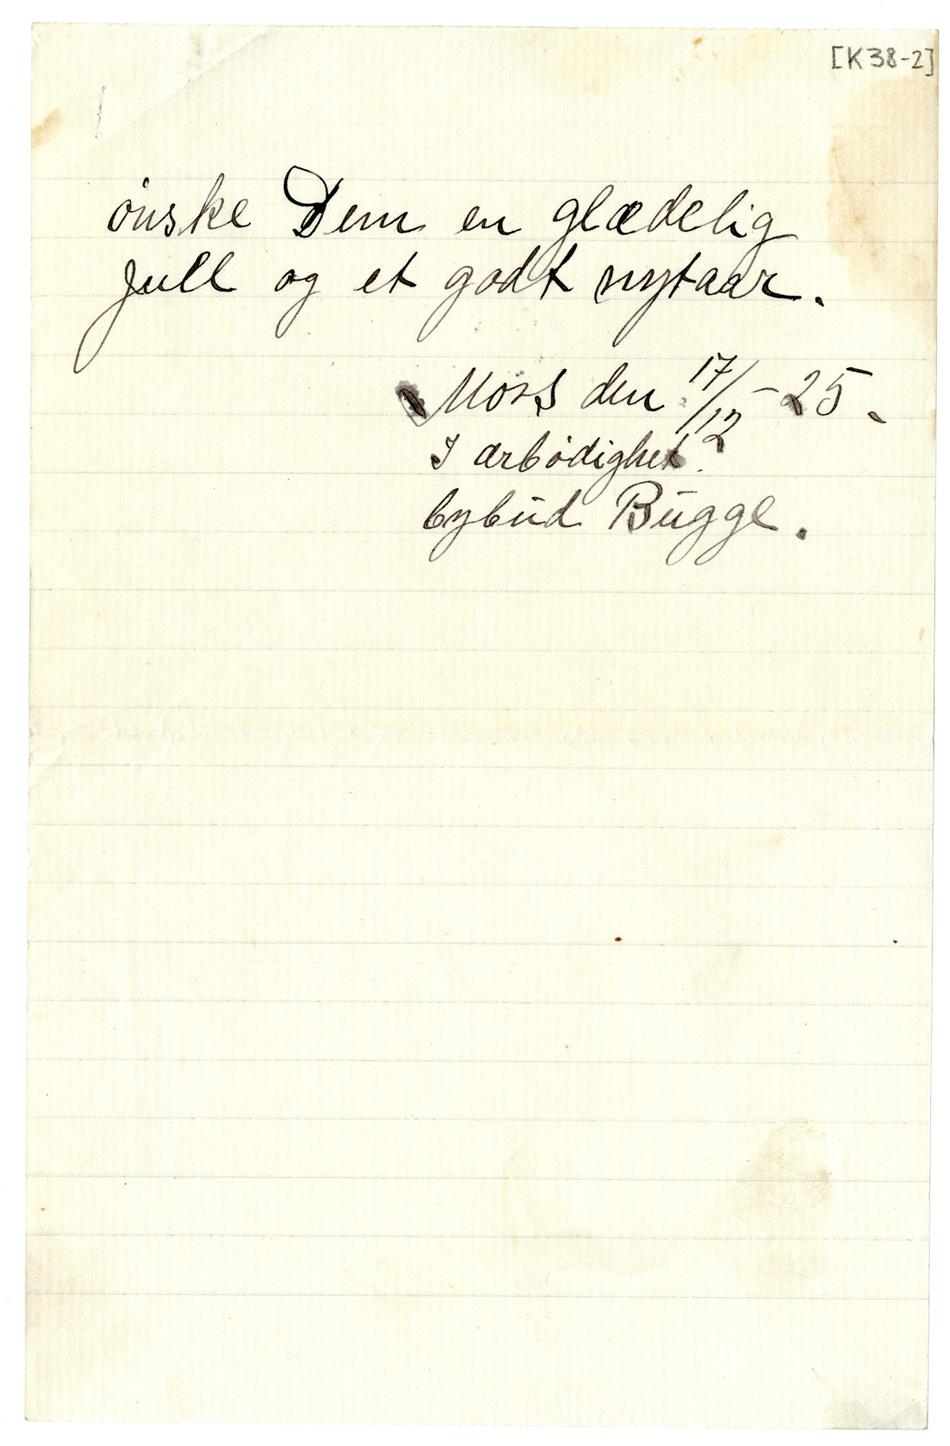 [K38-2]
ønske Dem en glædelig
Jull og et godt nytaar.
Moss den 17/12 - 25.
I ærbødighet.
bybud Bugge.